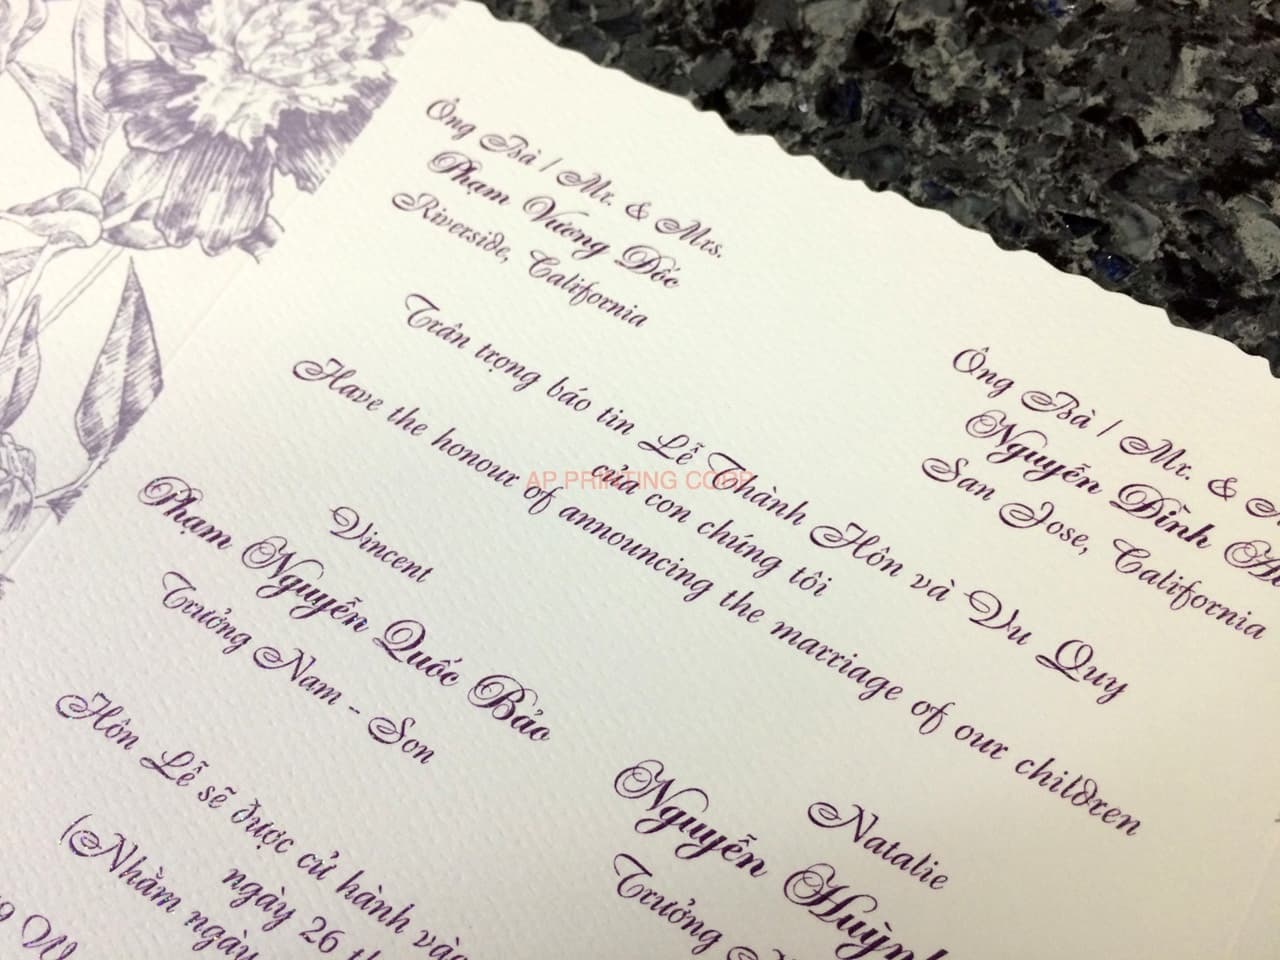 Ông Bà / Mr. & Mrs.
Phạm Vương Dốc
Riverside, California
Ông Bà / Mr. &
Nguyễn Đình
San Jose, California
Trân trọng báo tin Lễ Thành Hôn và Vu Quy
của con chúng tôi
Have the honour of announcing the marriage of our children
AP PRINTING CORP
Vincent
Phạm Nguyễn Quốc Bảo
Trưởng Nam - Son
Natalie
Nguyễn Huỳnh
Trưởng
Hôn Lễ sẽ được cử hành vào
ngày 26
(Nhằm ngày